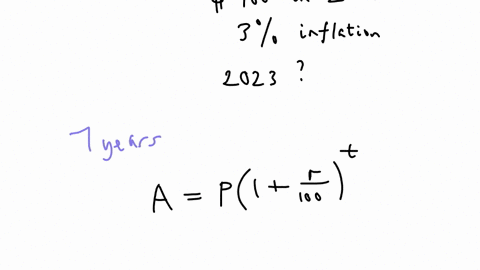 3% inflation
2023 ?
7 years
A = P(1 + r/100)^t